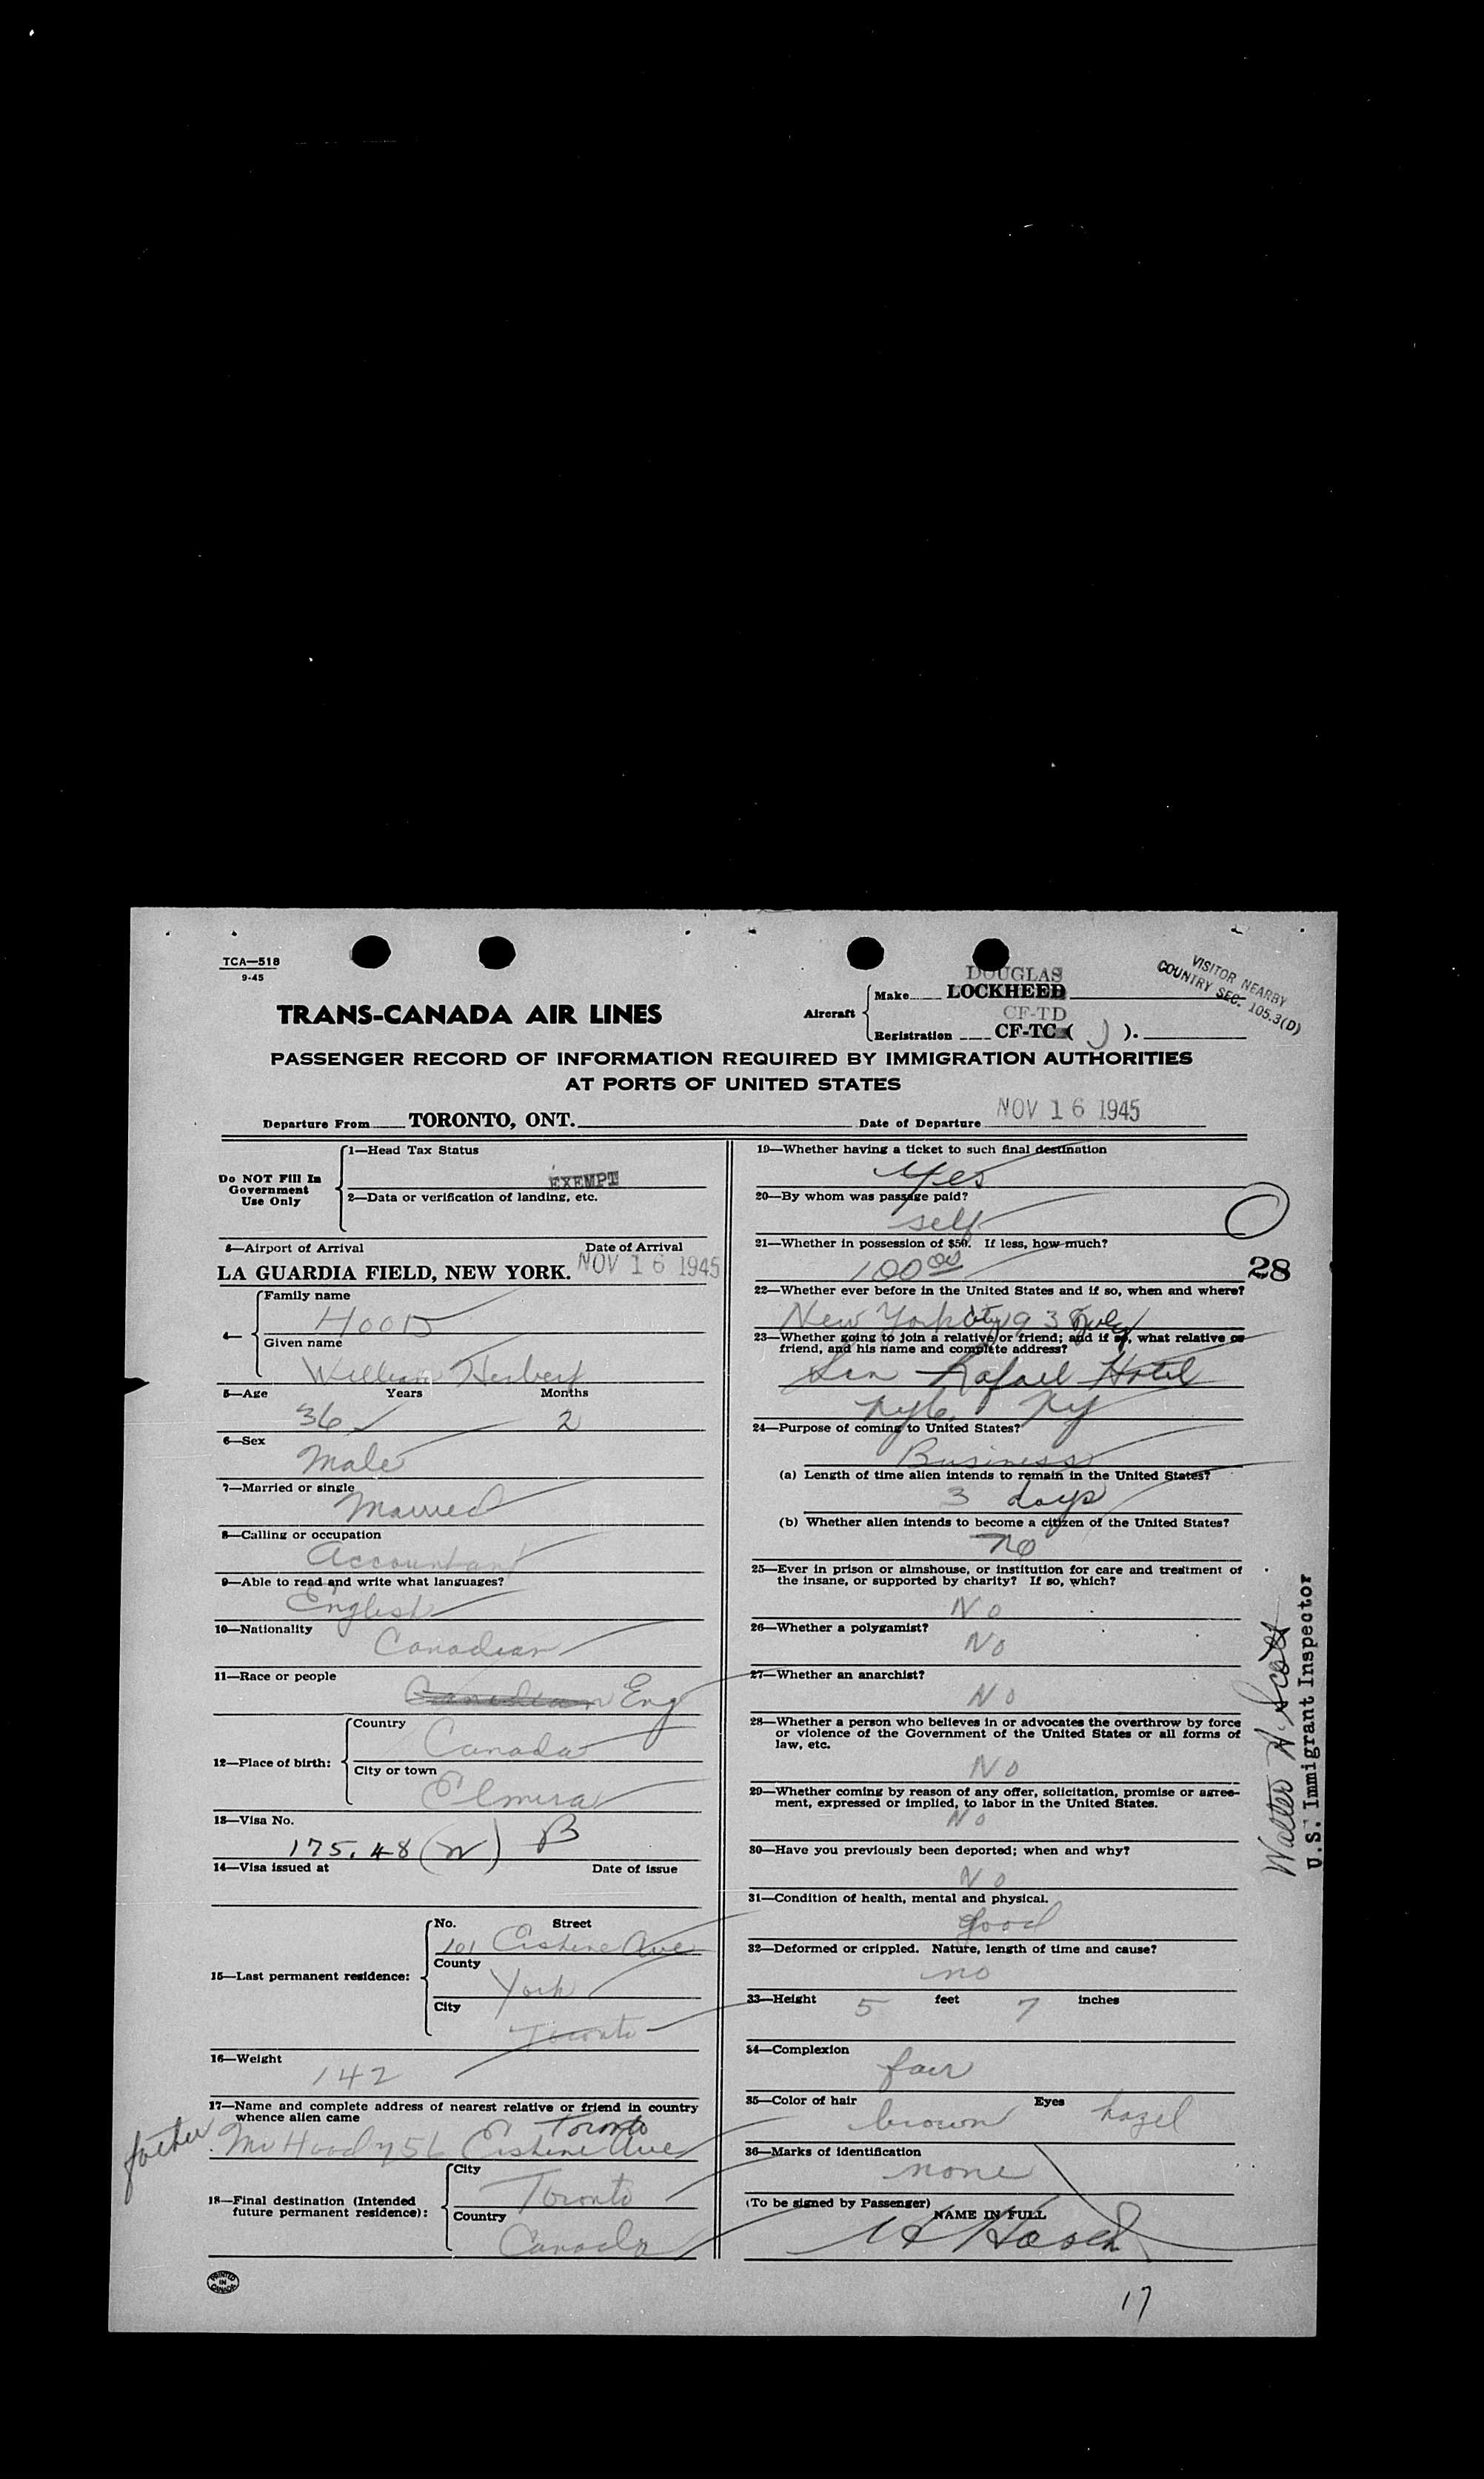 TCA—518
9-45
TRANS-CANADA AIR LINES
Aircraft
DOUGLAS
Make LOCKHEED
CF-TD
Registration CF-TC ( J ).
VISITOR NEARBY
COUNTRY SEC. 105.3(D)
PASSENGER RECORD OF INFORMATION REQUIRED BY IMMIGRATION AUTHORITIES
AT PORTS OF UNITED STATES
Departure From TORONTO, ONT. Date of Departure NOV 16 1945
Do NOT Fill In
Government
Use Only
1—Head Tax Status
EXEMPT
2—Data or verification of landing, etc.
3—Airport of Arrival Date of Arrival
LA GUARDIA FIELD, NEW YORK. NOV 16 1945
4—
Family name
HOOD
Given name
William Herbert
5—Age Years Months
36 2
6—Sex
Male
7—Married or single
Married
8—Calling or occupation
Accountant
9—Able to read and write what languages?
English
10—Nationality
Canadian
11—Race or people
Canadian Eng
12—Place of birth:
Country
Canada
City or town
Elmira
13—Visa No.
175.48 (W) B
14—Visa issued at Date of issue
15—Last permanent residence:
No. Street
101 Erskine Ave
County
York
City
Toronto
16—Weight
142
17—Name and complete address of nearest relative or friend in country
whence alien came
Toronto
father Mr Hood 56 Erskine Ave
18—Final destination (Intended
future permanent residence):
City
Toronto
Country
Canada
PRINTED
IN
CANADA
19—Whether having a ticket to such final destination
Yes
20—By whom was passage paid?
self
21—Whether in possession of $50. If less, how much?
100 00
28
22—Whether ever before in the United States and if so, when and where?
New York City 193
23—Whether going to join a relative or friend; and if so, what relative or
friend, and his name and complete address?
San Rafael Hotel
NYC NY
24—Purpose of coming to United States?
Business
(a) Length of time alien intends to remain in the United States?
3 days
(b) Whether alien intends to become a citizen of the United States?
No
25—Ever in prison or almshouse, or institution for care and treatment of
the insane, or supported by charity? If so, which?
No
26—Whether a polygamist?
No
27—Whether an anarchist?
No
28—Whether a person who believes in or advocates the overthrow by force
or violence of the Government of the United States or all forms of
law, etc.
No
29—Whether coming by reason of any offer, solicitation, promise or agree-
ment, expressed or implied, to labor in the United States.
No
30—Have you previously been deported; when and why?
No
31—Condition of health, mental and physical.
good
32—Deformed or crippled. Nature, length of time and cause?
no
33—Height 5 feet 7 inches
34—Complexion
fair
35—Color of hair Eyes
brown hazel
36—Marks of identification
none
(To be signed by Passenger)
NAME IN FULL
W H Hood
17
Walter H. Scott
U.S. Immigrant Inspector